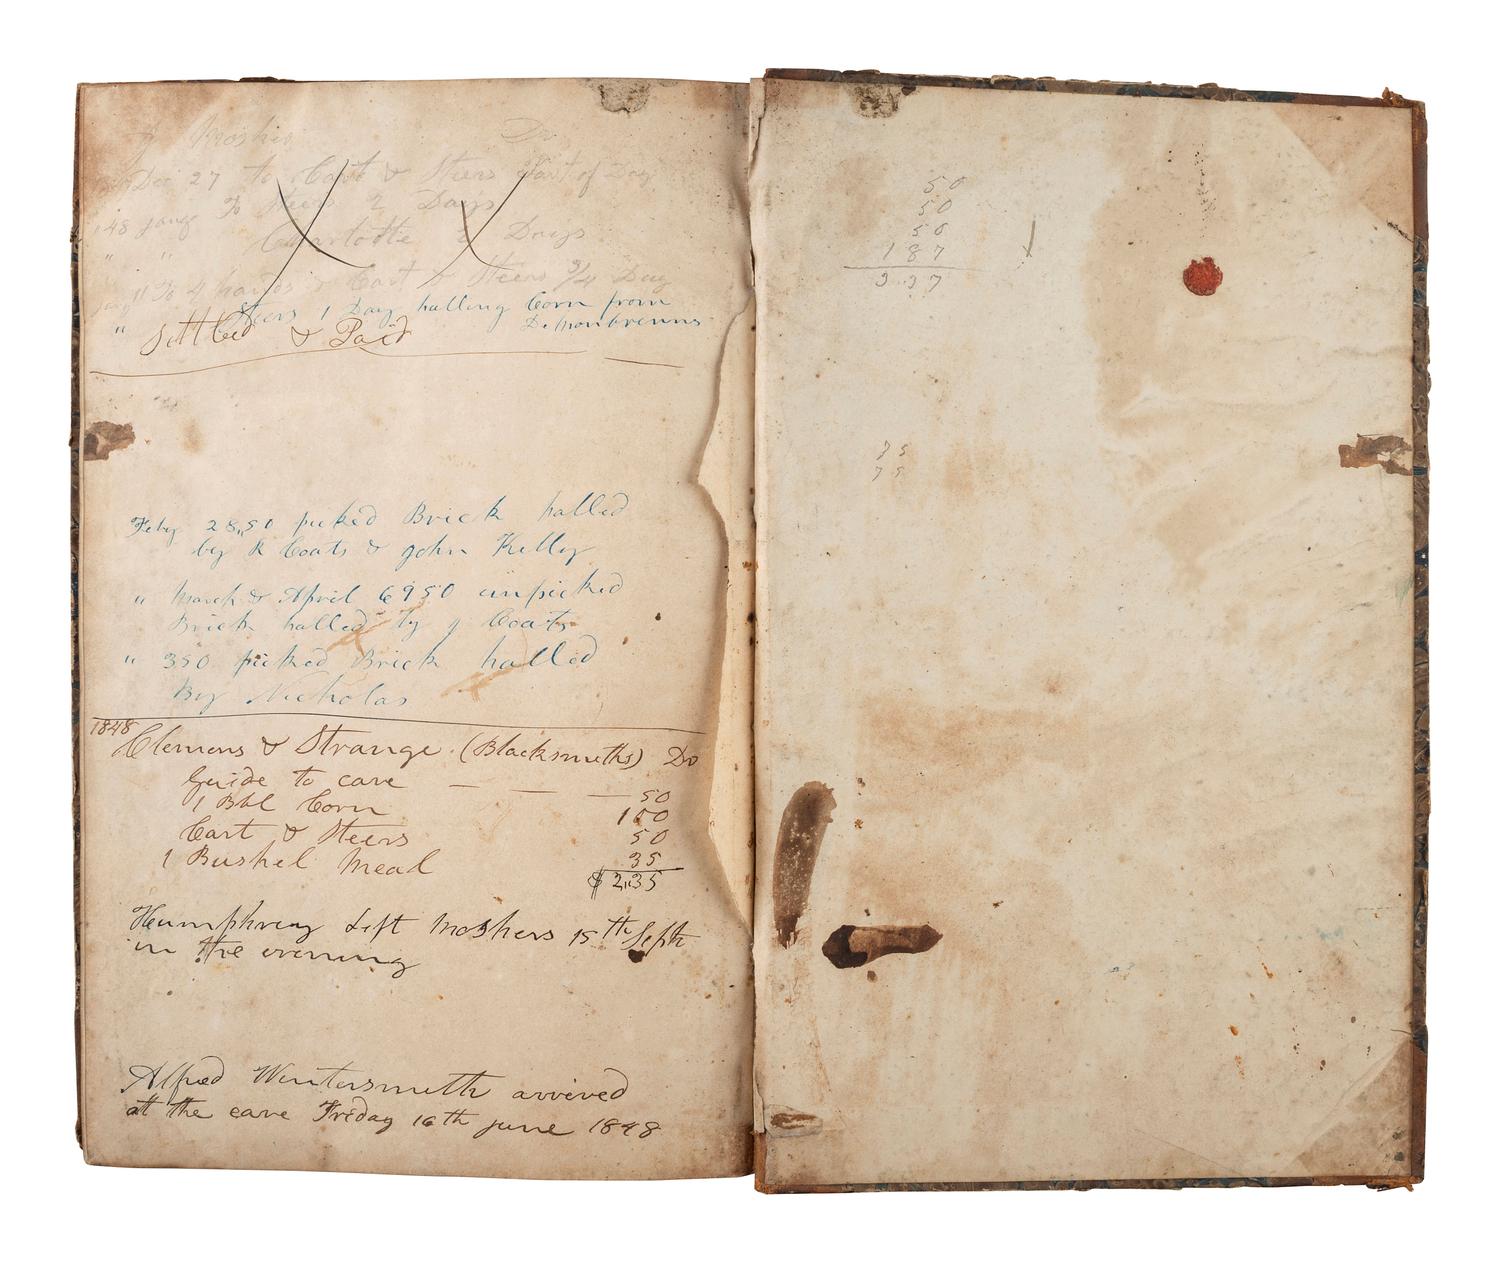 J Mosher Dr
Dec 27 to Cart & Steers part of Day
148 Jany To Steers 2 Days
" " 2 Days
Jany 11 To 4 hands & Cart & Steers 3/4 Day
" Steers 1 Day halling Corn from
Demonbreuns
Settled & Paid
Feby 28,,50 picked Brick halled
by R Coats & John Kelly
" March & April 6950 unpicked
Brick halled by J Coats
" 350 picked Brick halled
By Nicholas
1848
Clemons & Strange (Blacksmiths) Dr
Guide to cave — — — 50
1 Bbl Corn 100
Cart & Steers 50
1 Bushel Meal 35
$ 2,,35
Humphrey Left Moshers 15th Septh
in the evening
Alfred Wintersmith arrived
at the cave Friday 16th June 1848
50
50
50
187
3.37
75
75